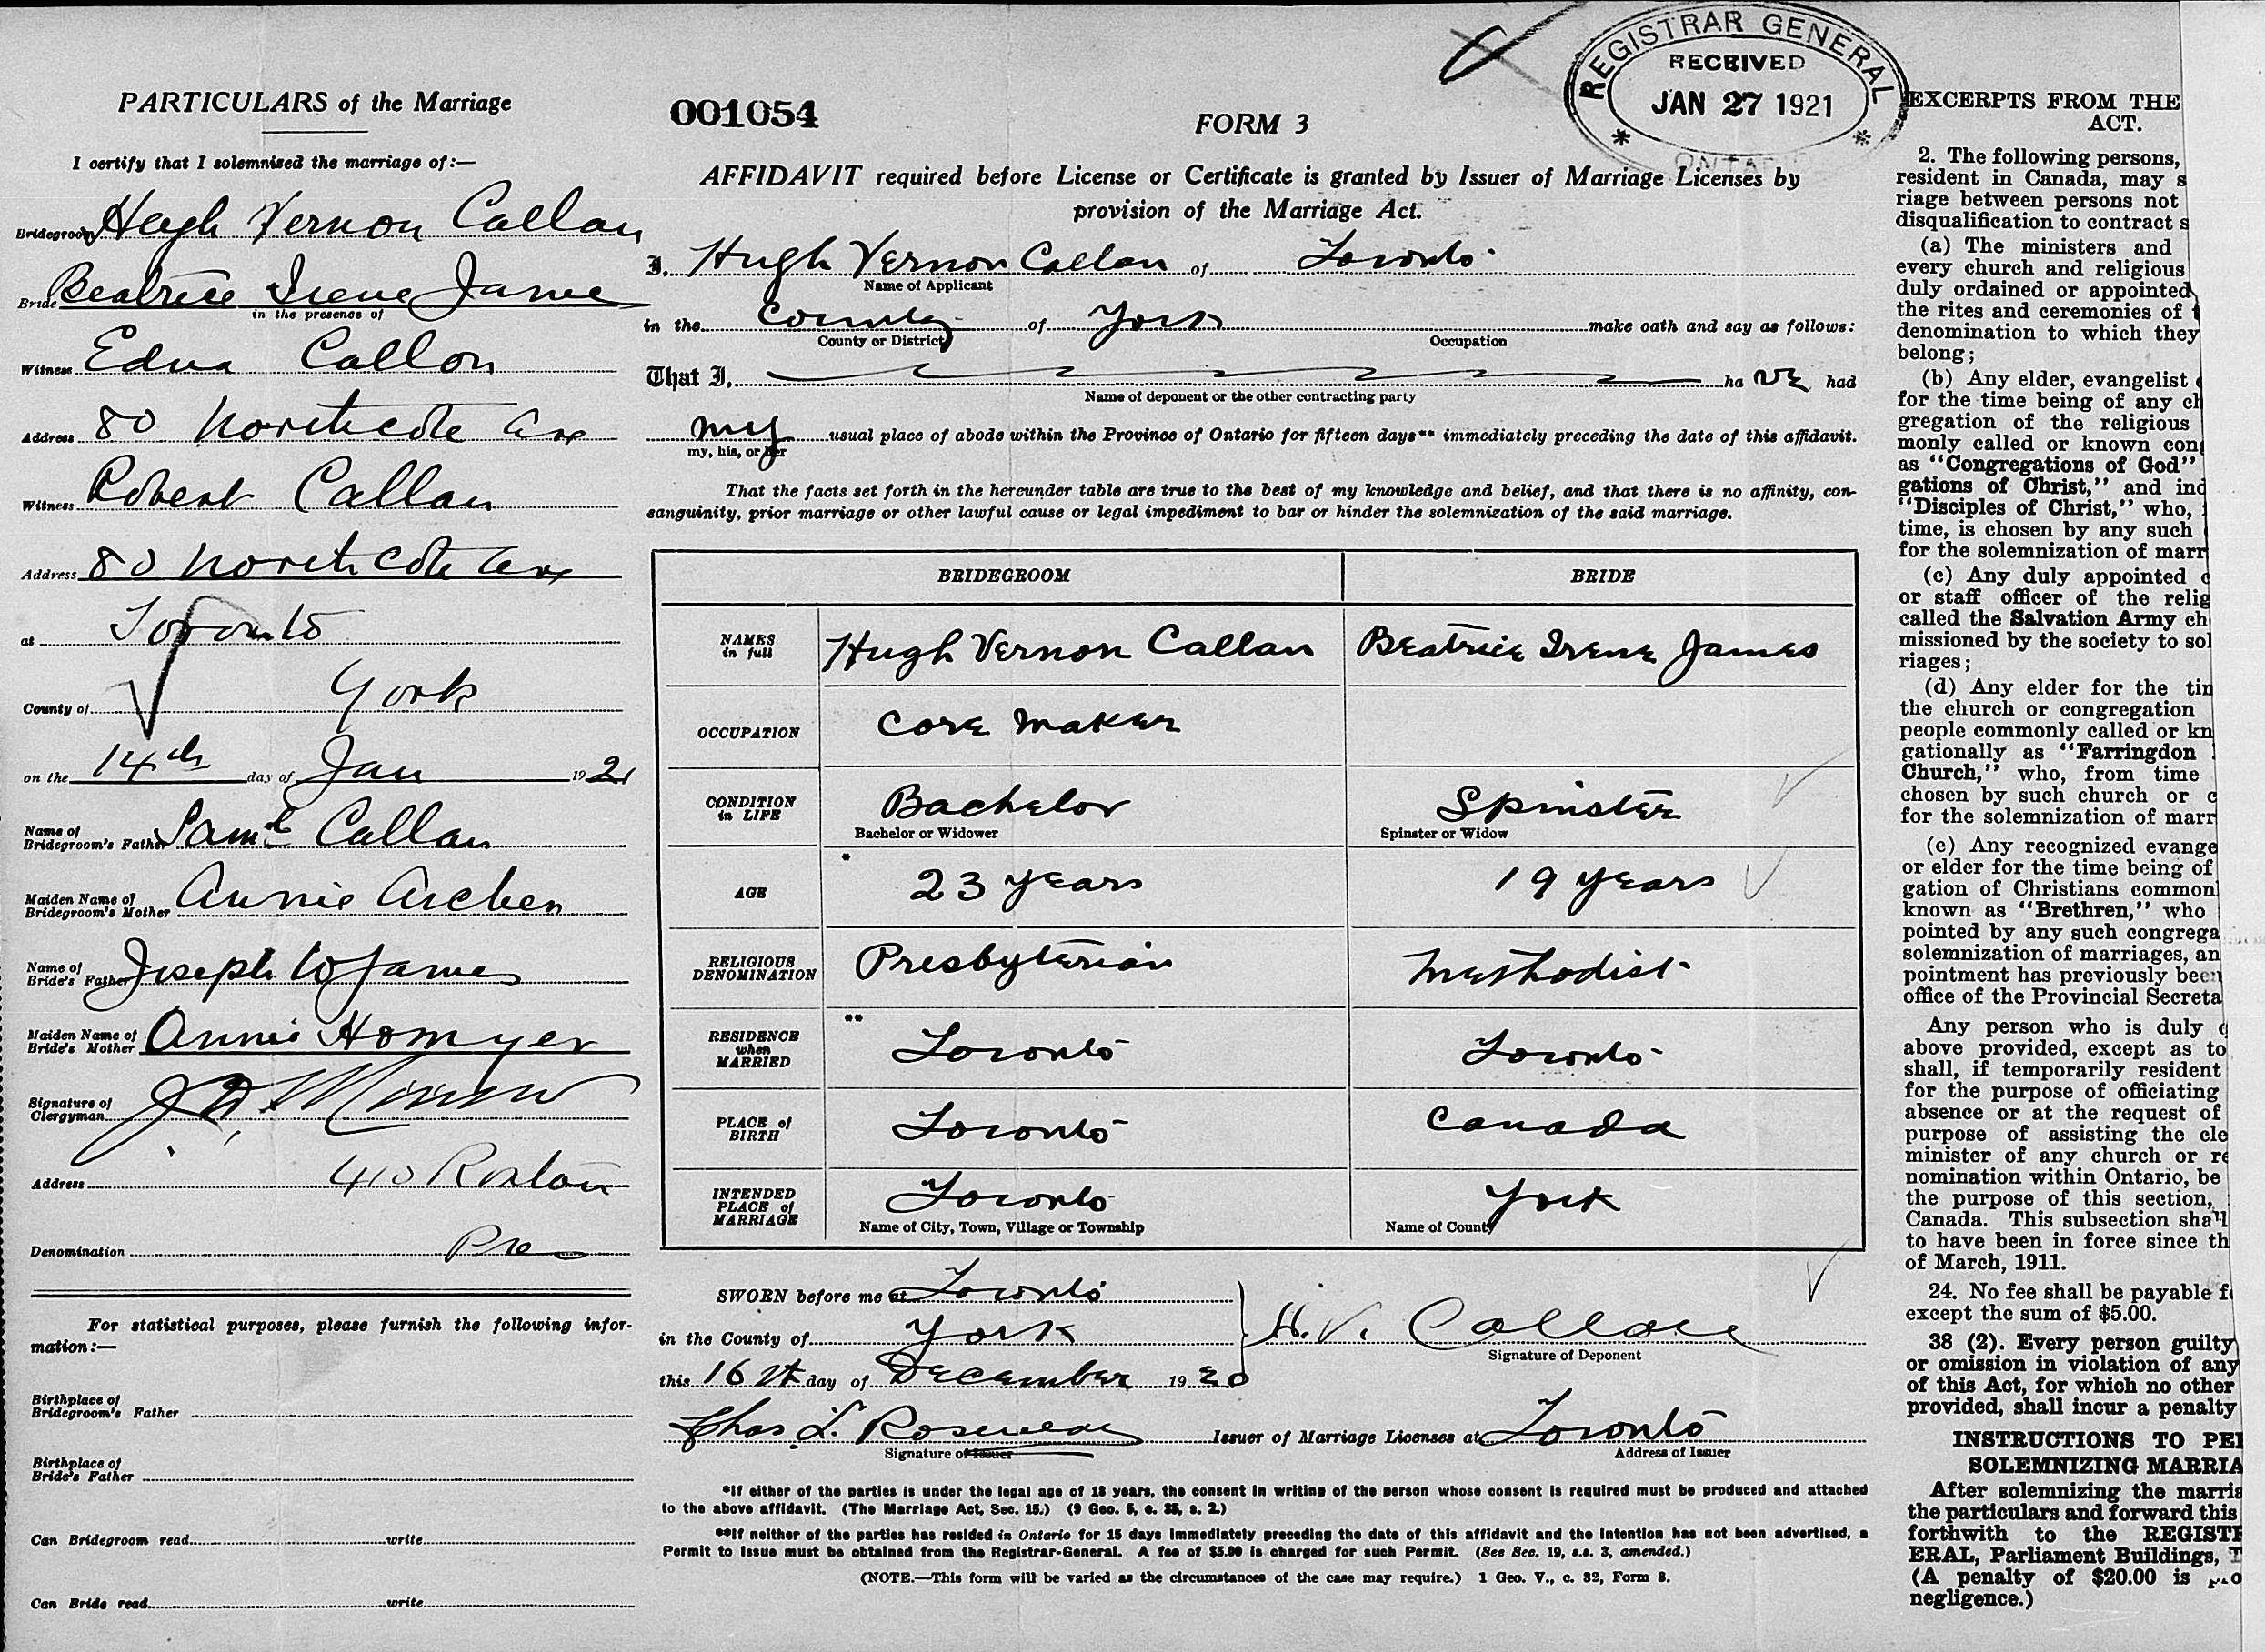 PARTICULARS of the Marriage
I certify that I solemnized the marriage of:—
Bridegroom Hugh Vernon Callan
Bride Beatrice Irene James
in the presence of
Witness Edna Callan
Address 80 Northcote Ave
Witness Robert Callan
Address 80 Northcote Ave
at Toronto
County of York
on the 14th day of Jan 1921
Name of Bridegroom's Father Saml Callan
Maiden Name of Bridegroom's Mother Annie Archer
Name of Bride's Father Joseph W James
Maiden Name of Bride's Mother Annie Homyer
Signature of Clergyman Morrow
Address 410
Denomination Pres
For statistical purposes, please furnish the following infor-
mation:—
Birthplace of Bridegroom's Father
Birthplace of Bride's Father
Can Bridegroom read write
Can Bride read write
001054
FORM 3
REGISTRAR GENERAL
RECEIVED
JAN 27 1921
ONTARIO
AFFIDAVIT required before License or Certificate is granted by Issuer of Marriage Licenses by
provision of the Marriage Act.
I, Hugh Vernon Callan of Toronto
Name of Applicant
in the County of York make oath and say as follows:
County or District Occupation
That I, ha ve had
Name of deponent or the other contracting party
my usual place of abode within the Province of Ontario for fifteen days** immediately preceding the date of this affidavit.
my, his, or her
That the facts set forth in the hereunder table are true to the best of my knowledge and belief, and that there is no affinity, con-
sanguinity, prior marriage or other lawful cause or legal impediment to bar or hinder the solemnization of the said marriage.
BRIDEGROOM BRIDE
NAMES in full Hugh Vernon Callan Beatrice Irene James
OCCUPATION Core Maker
CONDITION in LIFE Bachelor Spinster
Bachelor or Widower Spinster or Widow
AGE * 23 years 19 years
RELIGIOUS DENOMINATION Presbyterian Methodist
RESIDENCE when MARRIED ** Toronto Toronto
PLACE of BIRTH Toronto Canada
INTENDED PLACE of MARRIAGE Toronto York
Name of City, Town, Village or Township Name of County
SWORN before me at Toronto
in the County of York H. V. Callan
Signature of Deponent
this 16th day of December 1920
Chas. L. Issuer of Marriage Licenses at Toronto
Signature of Issuer Address of Issuer
*If either of the parties is under the legal age of 18 years, the consent in writing of the person whose consent is required must be produced and attached
to the above affidavit. (The Marriage Act, Sec. 15.) (9 Geo. 5, c. 35, s. 2.)
**If neither of the parties has resided in Ontario for 15 days immediately preceding the date of this affidavit and the intention has not been advertised, a
Permit to Issue must be obtained from the Registrar-General. A fee of $5.00 is charged for such Permit. (See Sec. 19, s.s. 3, amended.)
(NOTE.—This form will be varied as the circumstances of the case may require.) 1 Geo. V., c. 32, Form 3.
EXCERPTS FROM THE
ACT.
2. The following persons,
resident in Canada, may s
riage between persons not
disqualification to contract s
(a) The ministers and
every church and religious
duly ordained or appointed
the rites and ceremonies of
denomination to which they
belong;
(b) Any elder, evangelist
for the time being of any ch
gregation of the religious
monly called or known con
as "Congregations of God"
gations of Christ," and ind
"Disciples of Christ," who,
time, is chosen by any such
for the solemnization of marr
(c) Any duly appointed
or staff officer of the relig
called the Salvation Army ch
missioned by the society to sol
riages;
(d) Any elder for the tim
the church or congregation
people commonly called or kn
gationally as "Farringdon
Church," who, from time
chosen by such church or c
for the solemnization of marr
(e) Any recognized evange
or elder for the time being of
gation of Christians common
known as "Brethren," who
pointed by any such congrega
solemnization of marriages, an
pointment has previously been
office of the Provincial Secreta
Any person who is duly
above provided, except as to
shall, if temporarily resident
for the purpose of officiating
absence or at the request of
purpose of assisting the cle
minister of any church or re
nomination within Ontario, be
the purpose of this section,
Canada. This subsection shall
to have been in force since th
of March, 1911.
24. No fee shall be payable f
except the sum of $5.00.
38 (2). Every person guilty
or omission in violation of any
of this Act, for which no other
provided, shall incur a penalty
INSTRUCTIONS TO PE
SOLEMNIZING MARRIA
After solemnizing the marria
the particulars and forward this
forthwith to the REGIST
ERAL, Parliament Buildings, T
(A penalty of $20.00 is pro
negligence.)